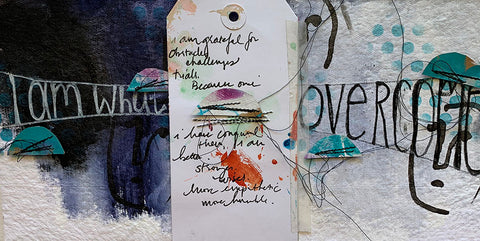 I am what
i am grateful for
obstacles
challenges
trials.
Because once
i have conquered
them, i am
better.
stronger
wiser
more empathetic
more humble.
OVERCOME